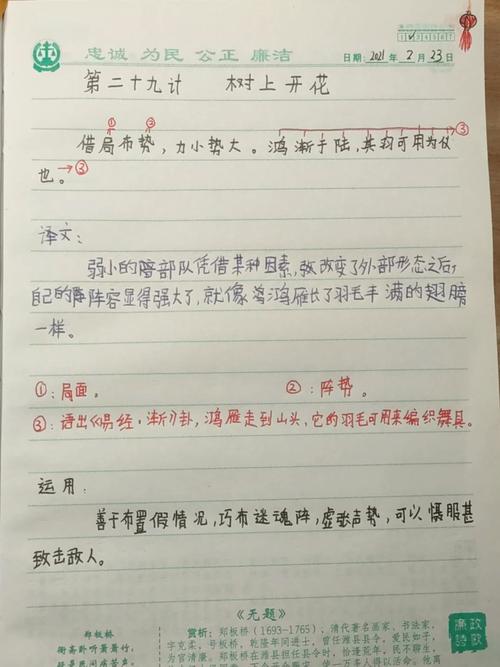 忠诚 为民 公正 廉洁
日期: 2021 年 2 月 23 日
第二十九计 树上开花
① ③
借局布势，力小势大。鸿渐于陆，其羽可用为仪
→③
也。→③
译文：
弱小的部队凭借某种因素，改变了外部形态之后，
自己的阵容显得强大了，就像鸿雁长了羽毛丰满的翅膀
一样。
①：局面。 ②：阵势。
③：语出《易经·渐》卦，鸿雁走到山头，它的羽毛可用来编织舞具。
运用：
善于布置假情况，巧布迷魂阵，虚张声势，可以慑服甚
致击敌人。
《无题》
郑板桥
衙斋卧听萧萧竹，
疑是民间疾苦声。
赏析：郑板桥（1693-1765），清代著名画家、书法家，
字克柔，号板桥，乾隆年间进士，曾任潍县县令，爱民如子，
为官清廉。郑板桥在潍县担任县令时，恰逢荒年，民不聊生，
廉政
诗